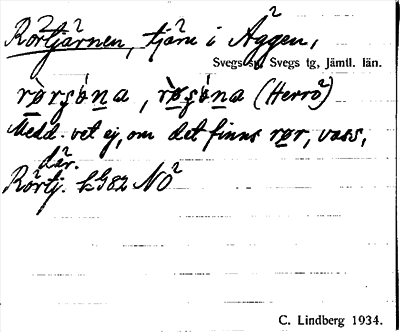 Rörtjärnen, tjärn i Äggen,
Svegs sn, Svegs tg, Jämtl. län.
(Herrö)
Medd. vet ej, om det finns rør, vass,
där.
Rörtj. LG82 NO
C. Lindberg 1934.